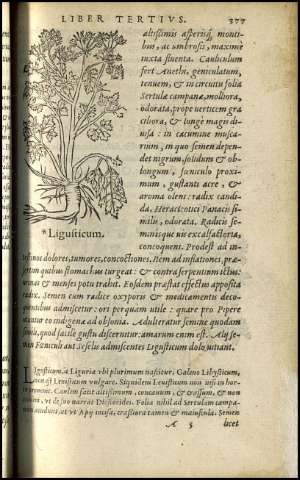 LIBER TERTIVS. 377
altissimis asperisq́; monti-
bus, ac umbrosis, maximè
iuxta fluenta. Cauliculum
fert Anethi, geniculatum,
tenuem, & in circuitu folia
Sertulæ campanæ, molliora,
odorata, prope verticem gra
ciliora, & longè magis di-
uisa: in cacumine muscariu
rium, in quo semen depen-
det nigrum, solidum & ob-
longum, fœniculo proxi-
mum, gustanti acre, &
aroma olens: radix candi-
da, Heracleotici Panacis si-
milis, odorata. Radicis se-
minisque vis excalfactoria,
concoquens. Prodest ad in-
Ligusticum.
dolores, tumores, concoctiones. Item ad inflationes, præ-
sertim quibus stomachus turgeat: & contra serpentium ictus:
vrinas & menses potu trahit. Eosdem præstat effectus apposita
radix. Semen cum radice oxyporis & medicamentis deco-
quentibus admiscetur: ori perquam vtile: quare pro Pipere
vtuntur eo indigenæ ad obsonia. Adulteratur semine quodam
simili, quod facile gustu discernitur: amarum enim est. Alij se-
men Fœniculi aut Seselis admiscentes Ligusticum dolo vitiant.
Ligusticum, à Liguria vbi plurimum nascitur. Galeno Libysticum,
vulgare. Siquidem Leuisticum non vsu in hor-
Caulem saltem altissimum, concauum, & crassum, & non
vt de suo narrat Dioscorides. Folia nihil ad Sertulam campa-
nam aut vt Apij incisa, crassiora tamen & maiuscula. Semen
A 5 licet